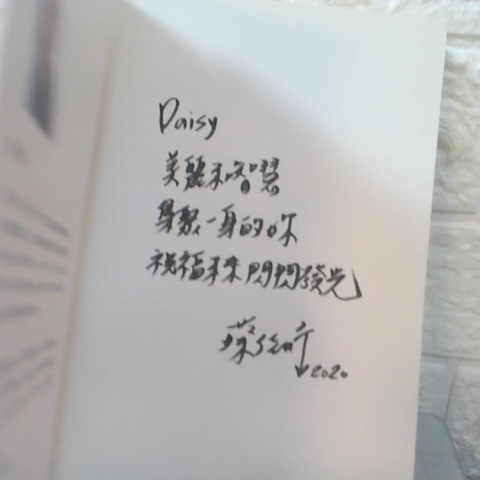 Daisy
美麗和智慧
集聚一身的妳
祝福未來閃閃發光
蔡
2020